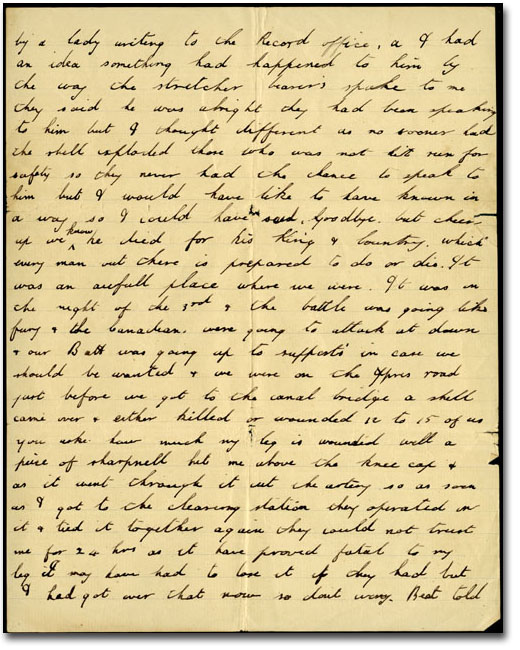 by a lady writing to the Record office, a I had
an idea something had happened to him by
the way the stretcher bearers spoke to me
they said he was alright they had been speaking
to him but I thought different as no sooner had
the shell exploded those who was not hit run for
safety so they never had the chance to speak to
him but I would have like to have known in
a way so I could have said Goodbye. but cheer
up we know he died for his King & Country, which
every man out there is prepared to do or die. It
was an awfull place where we were. It was in
the night of the 3rd & the battle was going like
fury & the Canadians were going to attack at dawn
& our Batt was going up to supports in case we
should be wanted & we were on the Ypres road
just before we got to the canal bridge a shell
came over & either killed or wounded 12 to 15 of us
you ask how much my leg is wounded well a
piece of sharpnell hit me above the knee cap &
as it went through it cut the artery so as soon
as I got to the clearing station they operated on
it & tied it together again they could not trust
me for 24 hrs as it have proved fatal to my
leg I may have had to lose it if they had but
I had got over that now so dont worry. Beat told